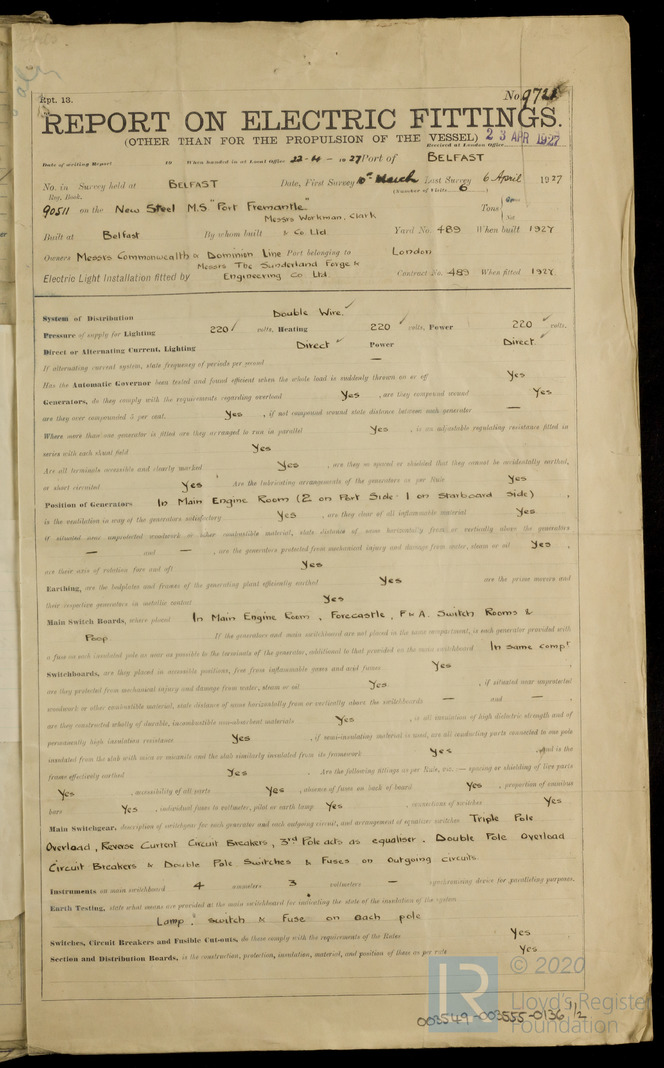 Rpt. 13.
No. 9721
REPORT ON ELECTRIC FITTINGS.
(OTHER THAN FOR THE PROPULSION OF THE VESSEL)
23 APR 1927
Received at London Office
Date of writing Report 19 When handed in at Local Office 22-4-1927 Port of BELFAST
No. in Survey held at BELFAST Date, First Survey 10th March Last Survey 6 April 1927
Reg. Book. (Number of Visits 6)
90511 on the New Steel M.S "Port Fremantle" Tons
Messrs Workman, Clark
Built at Belfast By whom built & Co Ltd. Yard No. 489 When built 1927
Owners Messrs Commonwealth & Dominion Line Port belonging to London
Electric Light Installation fitted by Messrs The Sunderland Forge & Engineering Co Ltd. Contract No. 489 When fitted 1927
System of Distribution Double Wire.
Pressure of supply for Lighting 220 volts, Heating 220 volts, Power 220 volts.
Direct or Alternating Current, Lighting Direct Power Direct.
If alternating current system, state frequency of periods per second —
Has the Automatic Governor been tested and found efficient when the whole load is suddenly thrown on or off Yes
Generators, do they comply with the requirements regarding overload Yes, are they compound wound Yes
are they over compounded 5 per cent. Yes, if not compound wound state distance between each generator —
Where more than one generator is fitted are they arranged to run in parallel Yes, is an adjustable regulating resistance fitted in
series with each shunt field Yes
Are all terminals accessible and clearly marked Yes, are they so spaced or shielded that they cannot be accidentally earthed,
or short circuited Yes Are the lubricating arrangements of the generators as per Rule Yes
Position of Generators In Main Engine Room (2 on Port Side 1 on Starboard Side),
is the ventilation in way of the generators satisfactory Yes, are they clear of all inflammable material Yes
if situated near unprotected woodwork or other combustible material, state distance of same horizontally from or vertically above the generators
— and —, are the generators protected from mechanical injury and damage from water, steam or oil Yes,
are their axis of rotation fore and aft Yes
Earthing, are the bedplates and frames of the generating plant efficiently earthed Yes are the prime movers and
their respective generators in metallic contact Yes
Main Switch Boards, where placed In Main Engine Room, Forecastle, F & A. Switch Rooms &
Poop. If the generators and main switchboard are not placed in the same compartment, is each generator provided with
a fuse on each insulated pole as near as possible to the terminals of the generator, additional to that provided on the main switchboard In same compt
Switchboards, are they placed in accessible positions, free from inflammable gases and acid fumes Yes,
are they protected from mechanical injury and damage from water, steam or oil Yes, if situated near unprotected
woodwork or other combustible material, state distance of same horizontally from or vertically above the switchboards — and —,
are they constructed wholly of durable, incombustible non-absorbent materials Yes, is all insulation of high dielectric strength and of
permanently high insulation resistance Yes, if semi-insulating material is used, are all conducting parts connected to one pole
insulated from the slab with mica or micanite and the slab similarly insulated from its framework Yes, and is the
frame effectively earthed Yes. Are the following fittings as per Rule, viz.:— spacing or shielding of live parts
Yes, accessibility of all parts Yes, absence of fuses on back of board Yes, proportion of omnibus
bars Yes, individual fuses to voltmeter, pilot or earth lamp Yes, connections of switches Yes
Main Switchgear, description of switchgear for each generator and each outgoing circuit, and arrangement of equaliser switches Triple Pole
Overload, Reverse Current Circuit Breakers, 3rd Pole acts as equaliser. Double Pole Overload
Circuit Breakers & Double Pole Switches & Fuses on outgoing circuits.
Instruments on main switchboard 4 ammeters 3 voltmeters — synchronising device for paralleling purposes.
Earth Testing, state what means are provided at the main switchboard for indicating the state of the insulation of the system
Lamp, switch & Fuse on each pole
Switches, Circuit Breakers and Fusible Cut-outs, do these comply with the requirements of the Rules Yes
Section and Distribution Boards, is the construction, protection, insulation, material, and position of them as per rule Yes
© 2020
Lloyd's Register
Foundation
003549-003555-0136 1/2